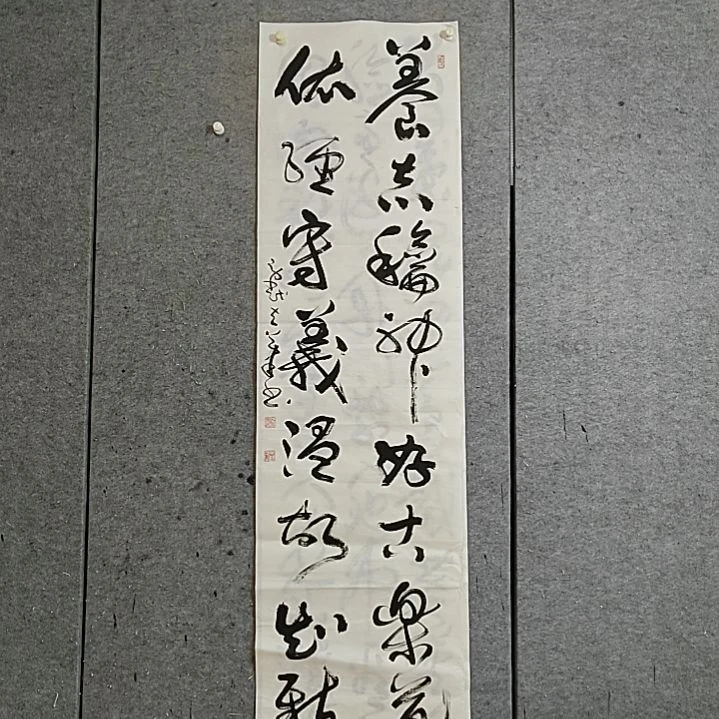 養志龢神好古樂道
依經守義溫故知新